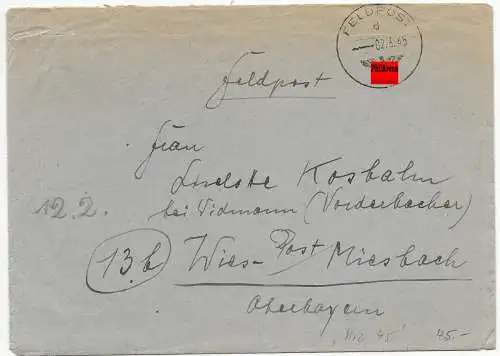 FELDPOST
d
02.3.45
Philarena
Feldpost
Frau
Liselotte Kosbahn
bei Widmann (Vorderbacher)
12.2.
13b Wies-Post Miesbach
Oberbayern
45.-